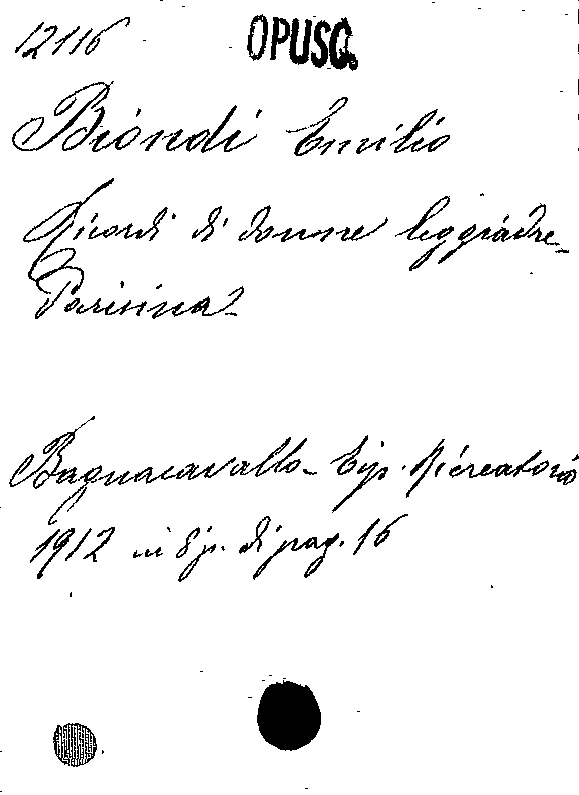 12116 OPUSC.
Biondi Emilio
Ricordi di donne leggiadre_
Parisina_
Bagnacavallo_ Tip. Ricreatorio
1912 in 8 p. di pag. 16